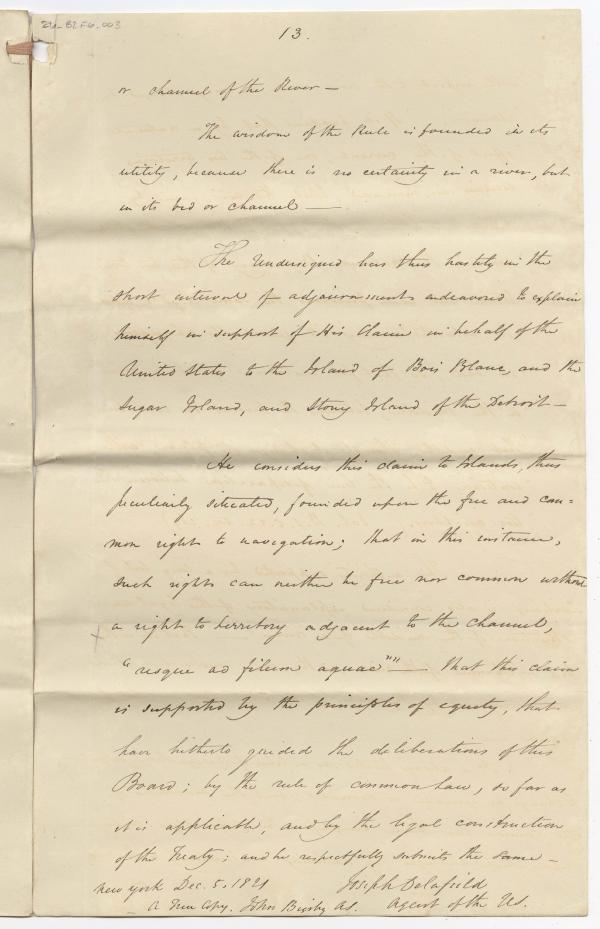 21_B2F6_003
13.
or channel of the River —
The wisdom of the Rule is founded in its
utility, because there is no certainty in a river, but
in its bed or channel —
The Undersigned has thus hastily in the
short interval of adjournments endeavored to explain
himself in support of His Claim in behalf of the
United States to the Island of Bois Blanc, and the
Sugar Island, and Stony Island of the Detroit —
He considers this claim to Islands, thus
peculiarly situated, founded upon the free and com=
mon right to navigation; that in this instance,
such rights can neither be free nor common without
x a right to territory adjacent to the channel,
"usque ad filum aquae"" — that this claim
is supported by the principles of equity, that
have hitherto guided the deliberations of this
Board; by the rule of common Law, so far as
it is applicable, and by the legal construction
of the Treaty; and he respectfully submits the same —
New York Dec. 5. 1821 Joseph Delafield
A True Copy. John Bigsby As. Agent of the US.